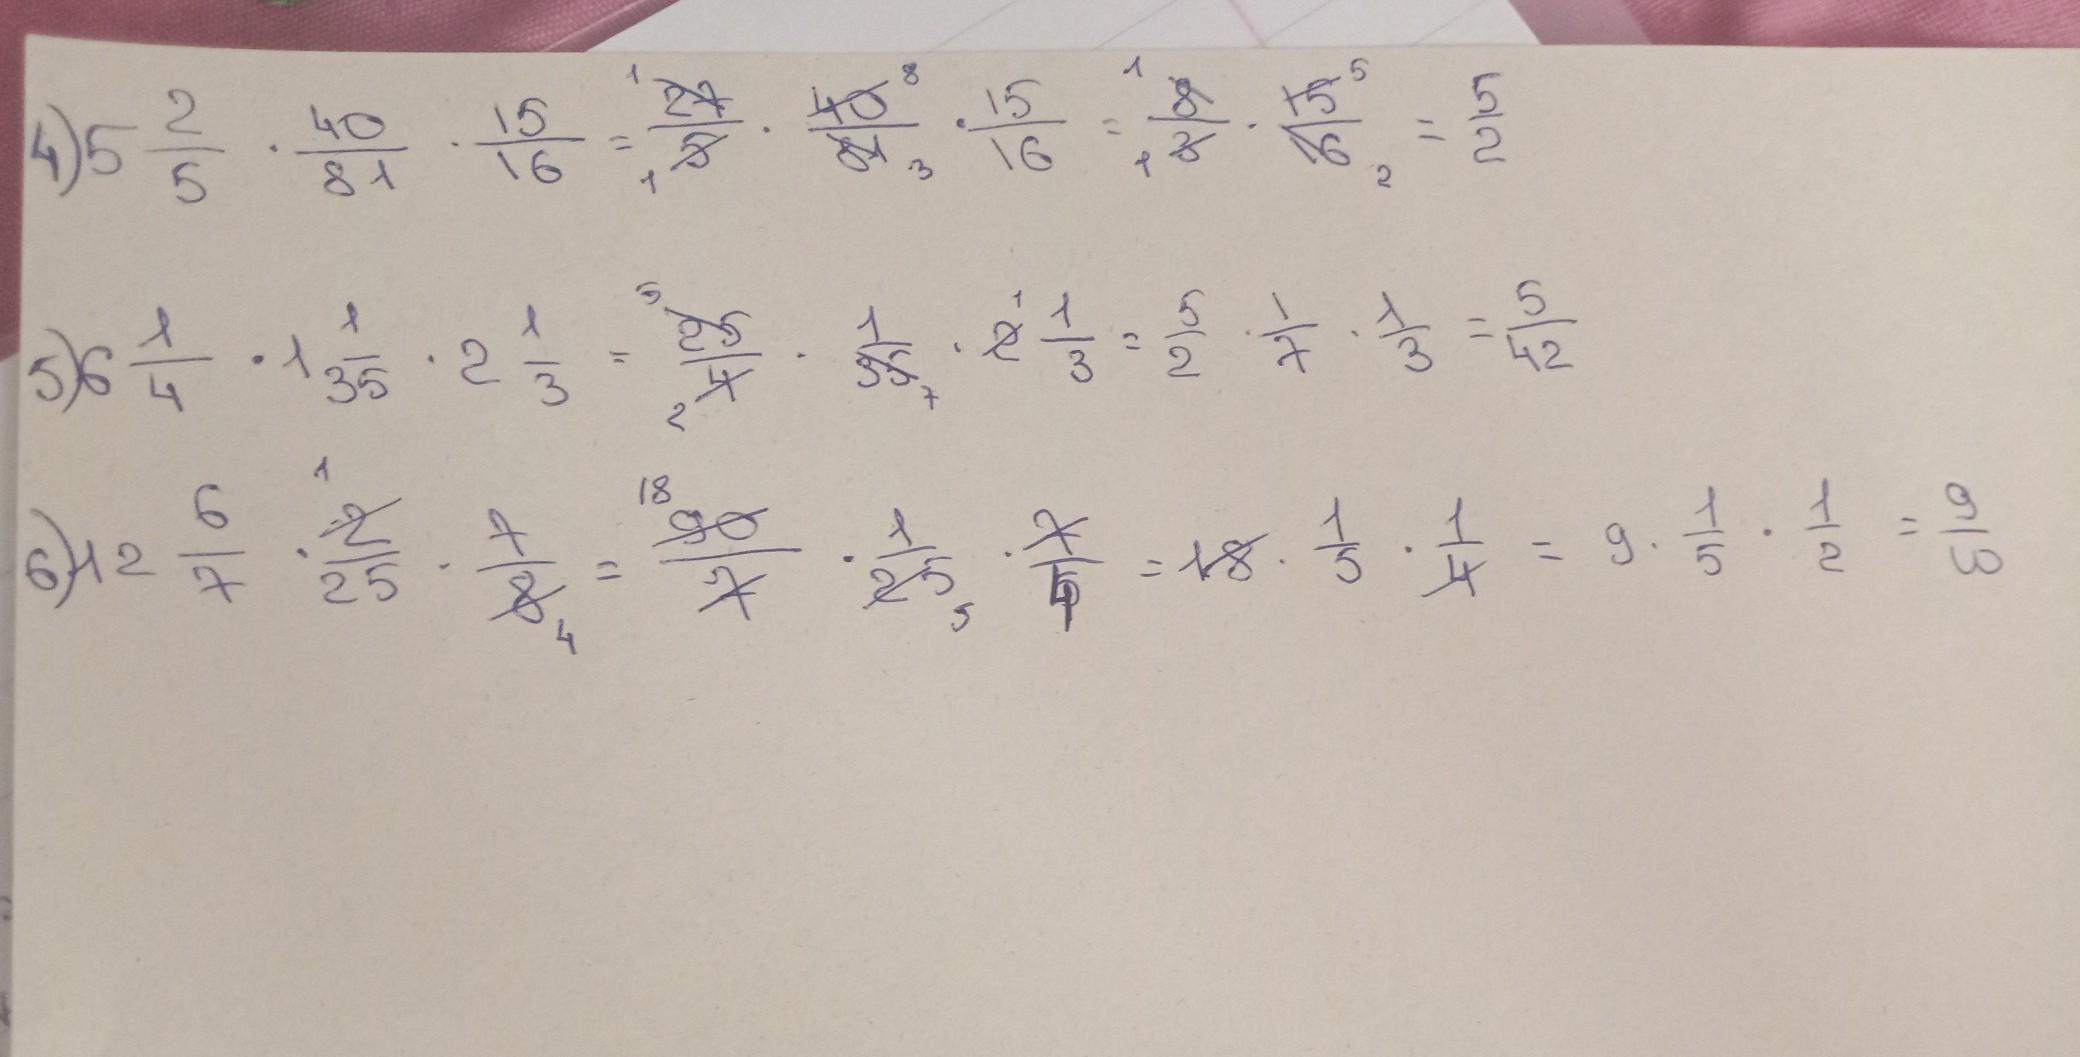 4) 5 2/5 · 40/81 · 15/16 = 1 27/5 1 · 40 8/81 3 · 15/16 = 1 8/3 1 · 15 5/16 2 = 5/2
5) 6 1/4 · 1 1/35 · 2 1/3 = 5 25/4 2 · 1/35 7 · 2 1 1/3 = 5/2 · 1/7 · 1/3 = 5/42
6) 12 6/7 · 1 2/25 · 7/8 4 = 18 90/7 · 1/25 5 · 7/4 = 18 · 1/5 · 1/4 = 9 · 1/5 · 1/2 = 9/10